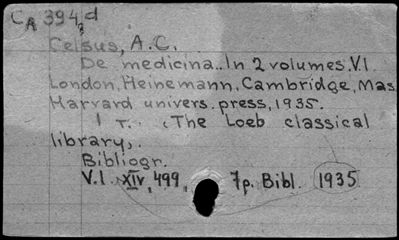 CA 394,d
Celsus, A.C.
De medicina..In 2 volumes.V.I.
London, Heinemann, Cambridge, Mas
Harvard univers. press, 1935.
1 т. (The Loeb classical
library).
Bibliogr.
V.I. XIV, 499, 7p. Bibl. 1935